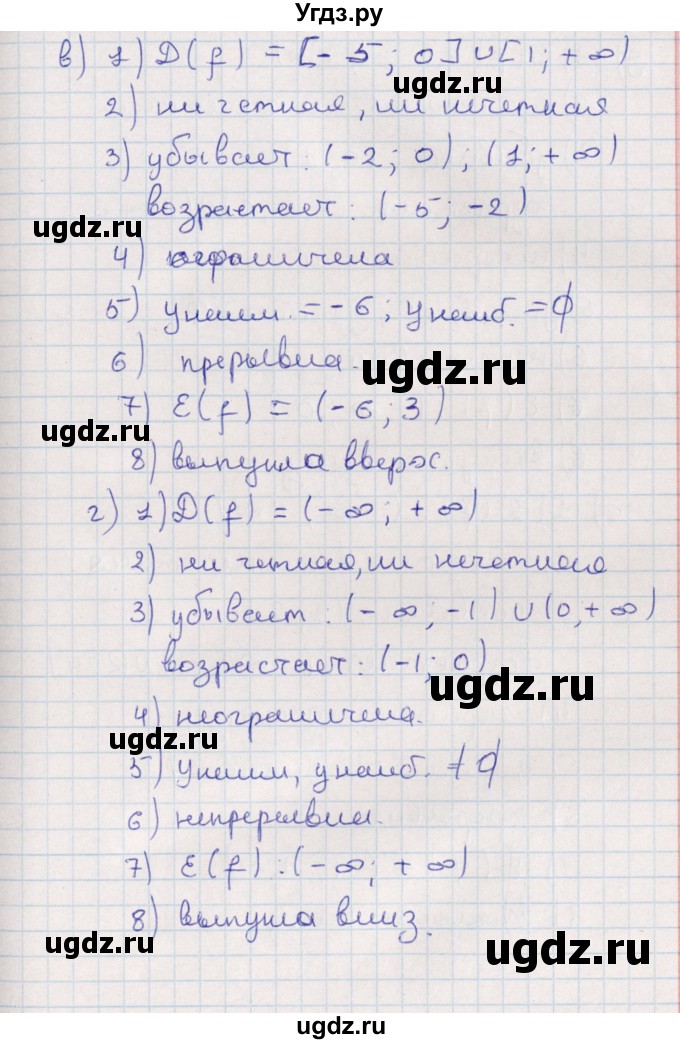 Угдз.ру
в) 1) D(f) = [-5; 0] ∪ [1; +∞)
2) ни четная, ни нечетная
3) убывает: (-2; 0); (1; +∞)
возрастает: (-5; -2)
ugdz.ru
ugdz.ru
4) ограничена
5) y наим. = -6; y наиб. = ∅
6) прерывна.
ugdz.ru
7) E(f) = (-6; 3)
ugdz.ru
ugdz.ru
8) выпукла вверх.
г) 1) D(f) = (-∞; +∞)
2) ни четная, ни нечетная
3) убывает: (-∞; -1) ∪ (0; +∞)
возрастает: (-1; 0)
ugdz.ru
4) неограничена.
ugdz.ru
5) y наим, y наиб. ∅
6) непрерывна.
7) E(f): (-∞; +∞)
8) выпукла вниз.
ugdz.ru
ugdz.ru
ugdz.ru